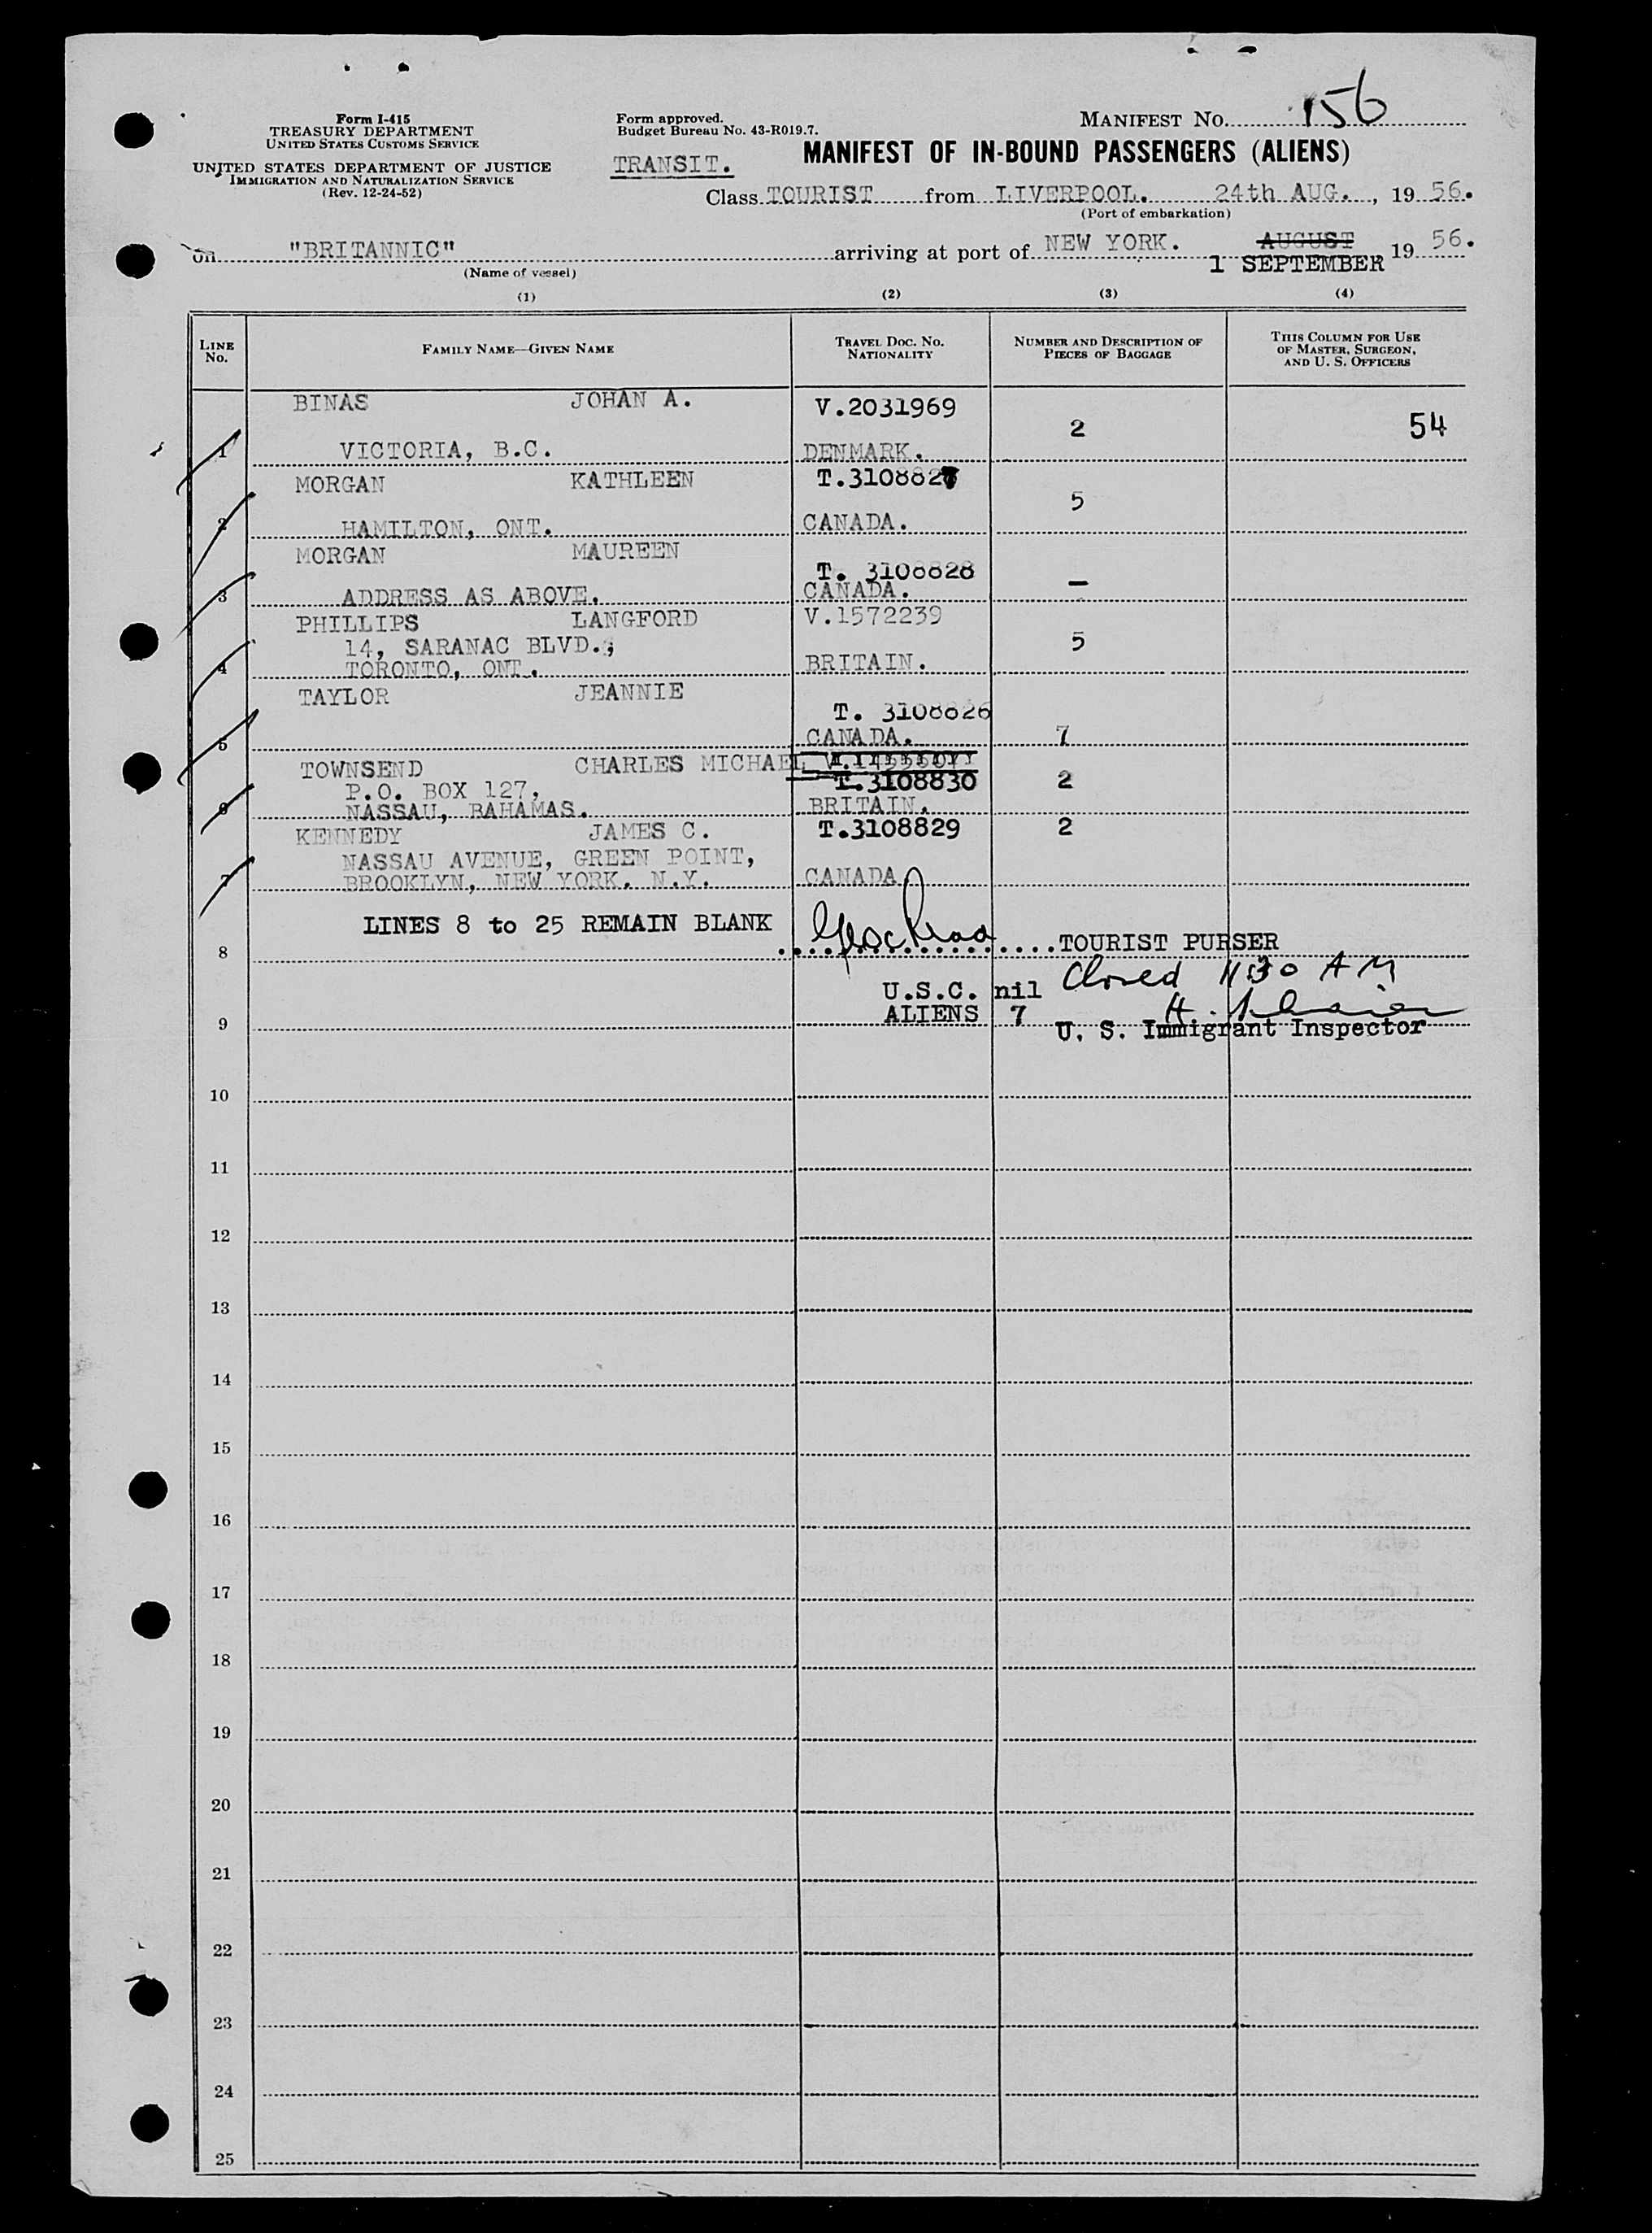 Form I-415
TREASURY DEPARTMENT
UNITED STATES CUSTOMS SERVICE
UNITED STATES DEPARTMENT OF JUSTICE
IMMIGRATION AND NATURALIZATION SERVICE
(Rev. 12-24-52)
Form approved.
Budget Bureau No. 43-R019.7.
TRANSIT.
MANIFEST NO. 156
MANIFEST OF IN-BOUND PASSENGERS (ALIENS)
Class TOURIST from LIVERPOOL. 24th AUG., 1956.
(Port of embarkation)
on "BRITANNIC" arriving at port of NEW YORK. AUGUST 1956.
1 SEPTEMBER
(Name of vessel)
(1) (2) (3) (4)
LINE NO. FAMILY NAME—GIVEN NAME TRAVEL DOC. NO. NATIONALITY NUMBER AND DESCRIPTION OF PIECES OF BAGGAGE THIS COLUMN FOR USE OF MASTER, SURGEON, AND U. S. OFFICERS
BINAS JOHAN A. V.2031969
2 54
1 VICTORIA, B.C. DENMARK.
MORGAN KATHLEEN T.3108827
5
2 HAMILTON, ONT. CANADA.
MORGAN MAUREEN
T. 3108828 —
3 ADDRESS AS ABOVE. CANADA.
PHILLIPS LANGFORD V.1572239
14, SARANAC BLVD.; 5
4 TORONTO, ONT. BRITAIN.
TAYLOR JEANNIE
T. 3108826
5 CANADA. 7
TOWNSEND CHARLES MICHAEL
P.O. BOX 127, T.3108830 2
6 NASSAU, BAHAMAS. BRITAIN.
KENNEDY JAMES C. T.3108829 2
NASSAU AVENUE, GREEN POINT,
7 BROOKLYN, NEW YORK. N.Y. CANADA
LINES 8 to 25 REMAIN BLANK
8 TOURIST PURSER
Closed 11:30 AM
U.S.C. nil
9 ALIENS 7
U. S. Immigrant Inspector
10
11
12
13
14
15
16
17
18
19
20
21
22
23
24
25